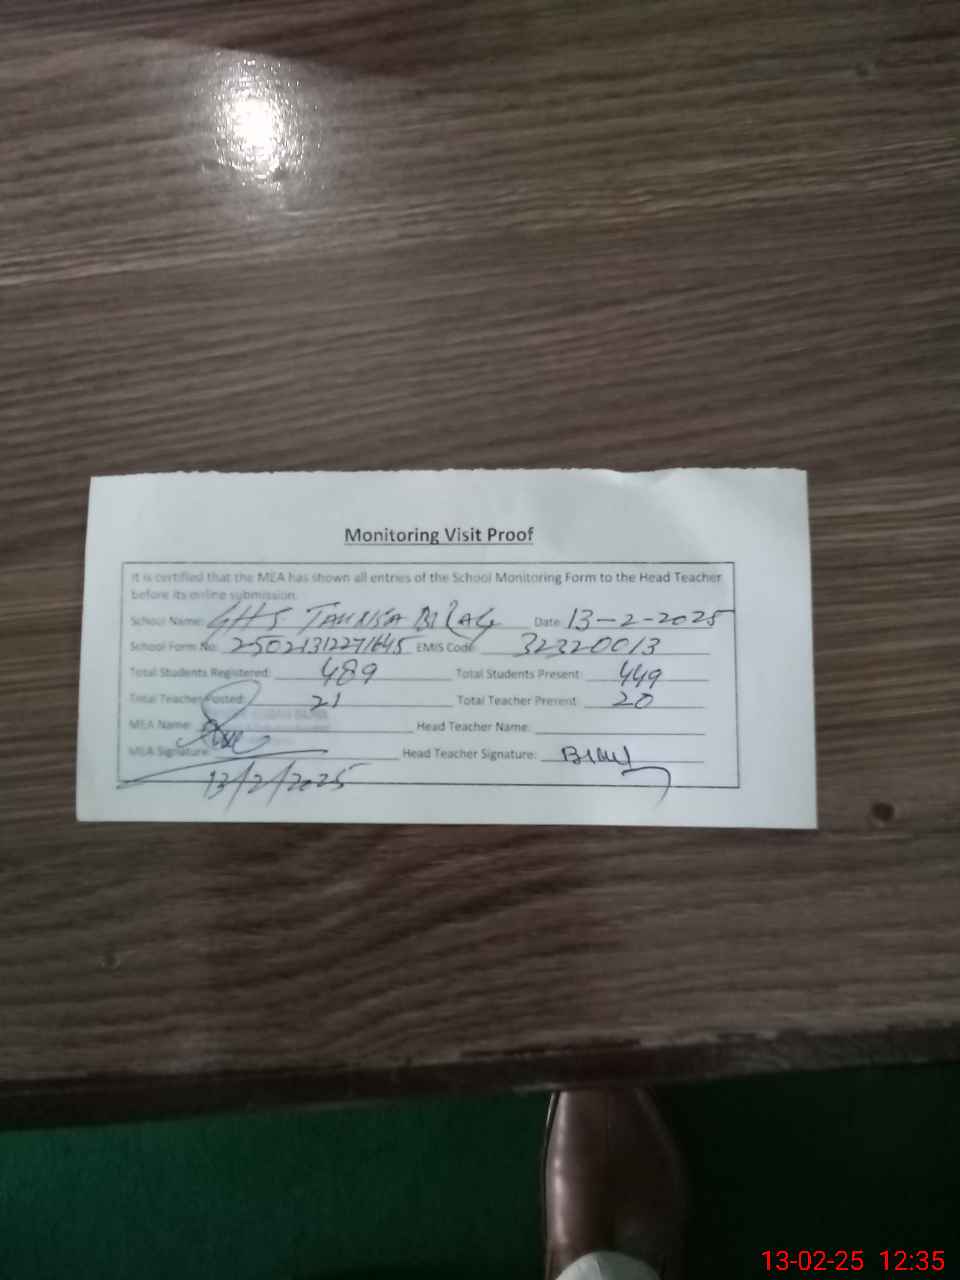 Monitoring Visit Proof
It is certified that the MEA has shown all entries of the School Monitoring Form to the Head Teacher
before its online submission.
School Name: GHS TAUNSA Date: 13-2-2025
School Form No: EMIS Code: 32320013
Total Students Registered: 489 Total Students Present: 449
Total Teacher Posted: 21 Total Teacher Prerent: 20
MEA Name: Head Teacher Name:
MEA Signature: Head Teacher Signature:
13/2/2025
13-02-25 12:35